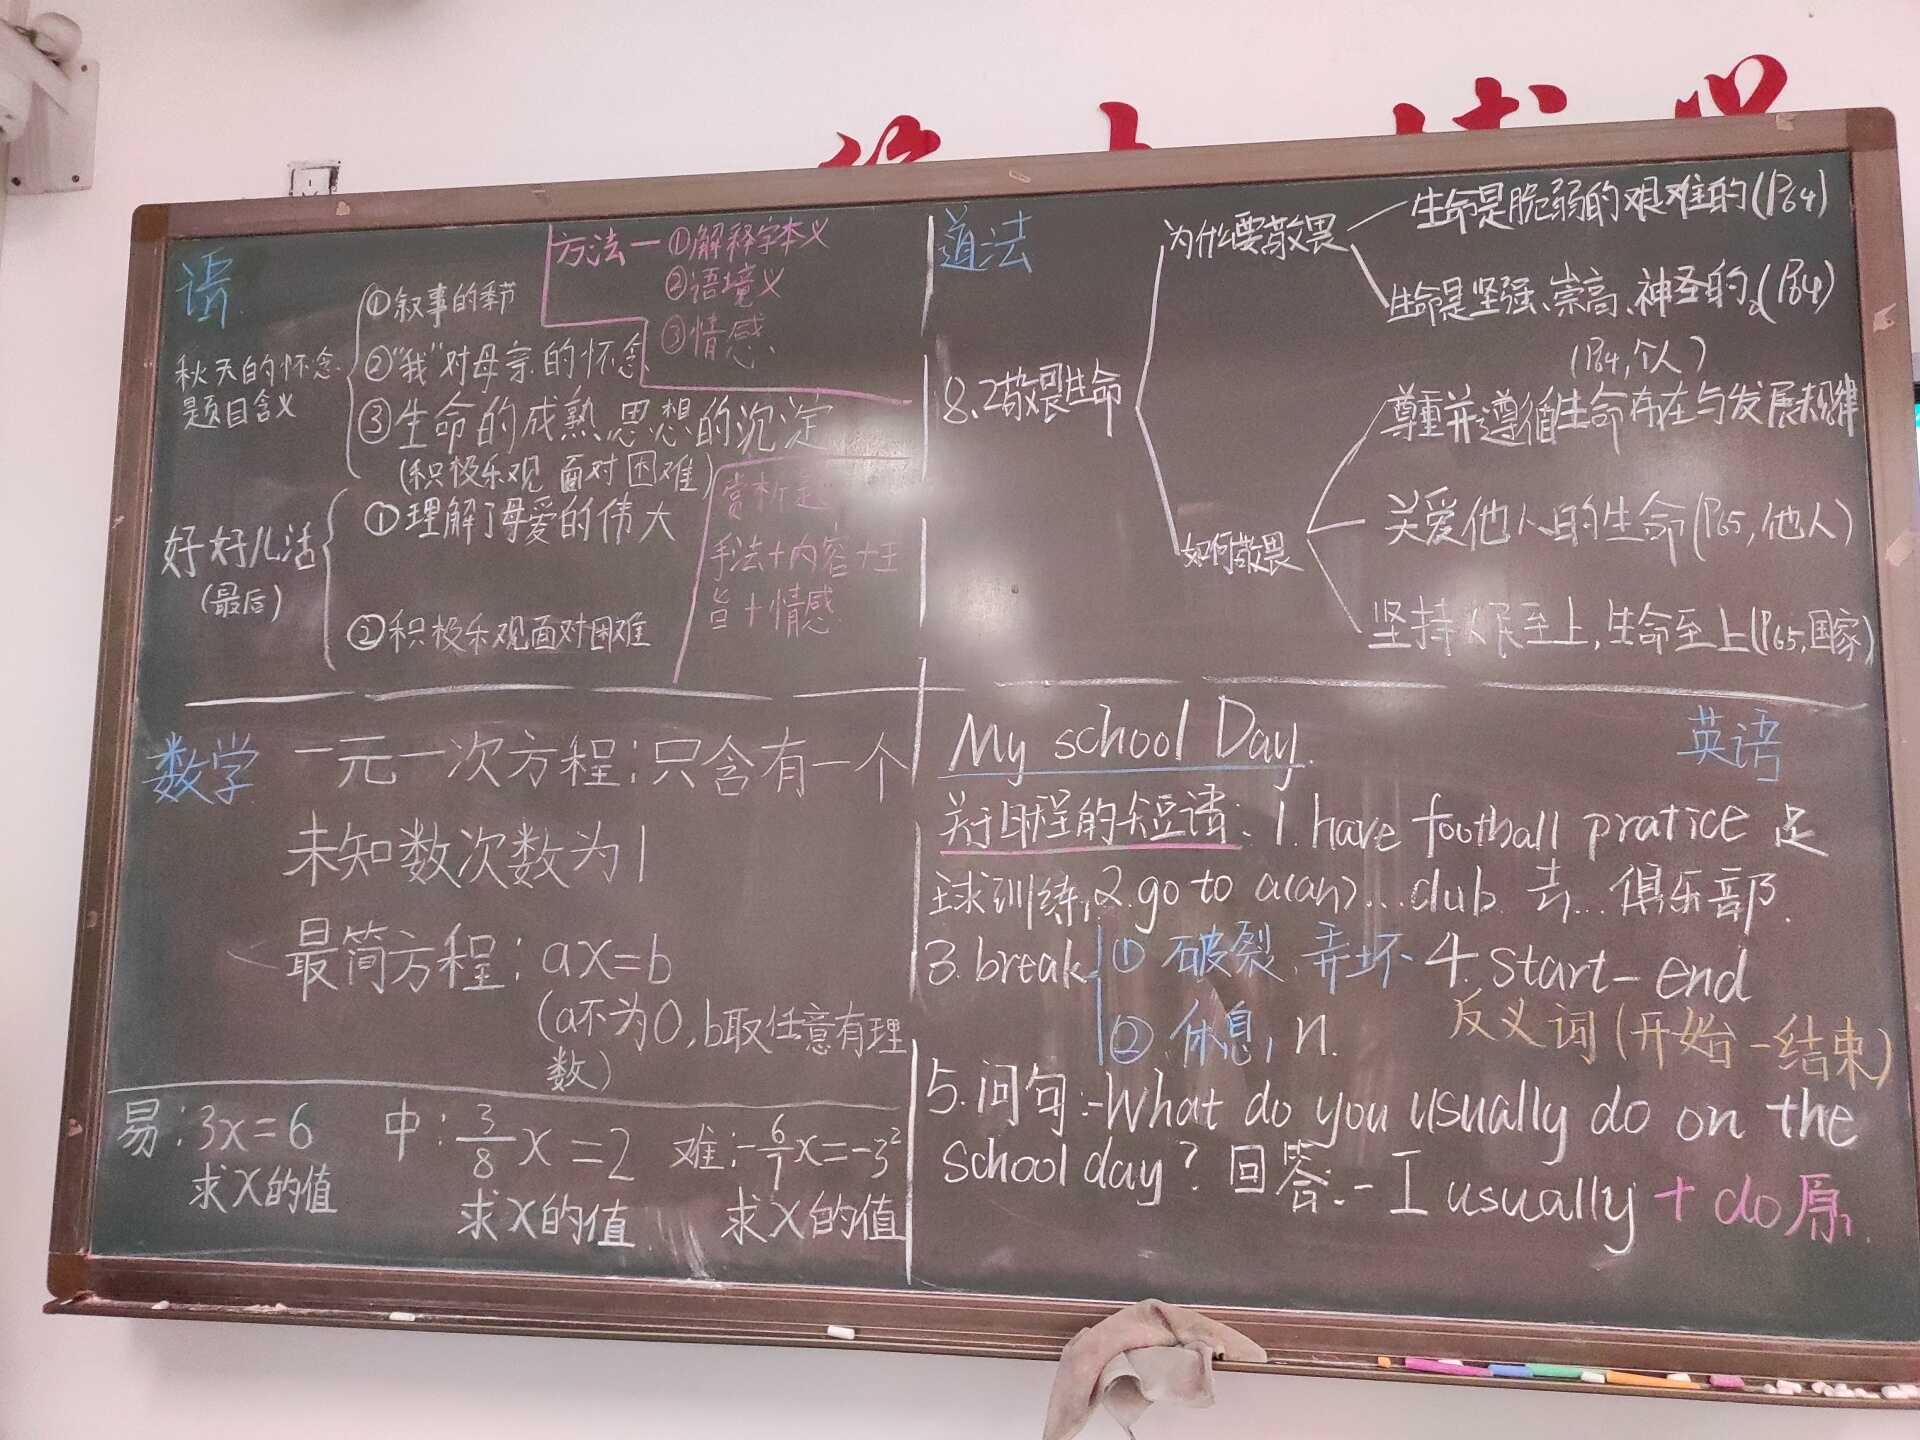 语
方法一 ①解释字本义
②语境义
③情感
秋天的怀念
题目含义
①叙事的季节
②“我”对母亲的怀念
③生命的成熟,思想的沉淀
(积极乐观 面对困难)
好好儿活
(最后)
①理解了母爱的伟大
②积极乐观面对困难
赏析题
手法+内容+主
旨+情感
道法
8.2敬畏生命
为什么要敬畏
生命是脆弱的艰难的(P64)
生命是坚强、崇高、神圣的。(P64)
如何敬畏
(P64,个人)
尊重并遵循生命存在与发展规律
关爱他人的生命(P65,他人)
坚持人民至上,生命至上(P65,国家)
数学 一元一次方程:只含有一个
未知数次数为1
最简方程:ax=b
(a不为0,b取任意有理
数)
易:3x=6
求x的值
中:3/8x=2
求x的值
难:-6/7x=-3²
求x的值
My school Day.
英语
关于日程的短语:1.have football pratice 足
球训练,2.go to a(an)...club 去...俱乐部.
3.break ①破裂、弄坏 4.start-end
②休息,n. 反义词(开始-结束)
5.问句:-What do you usually do on the
school day? 回答:-I usually + do原.